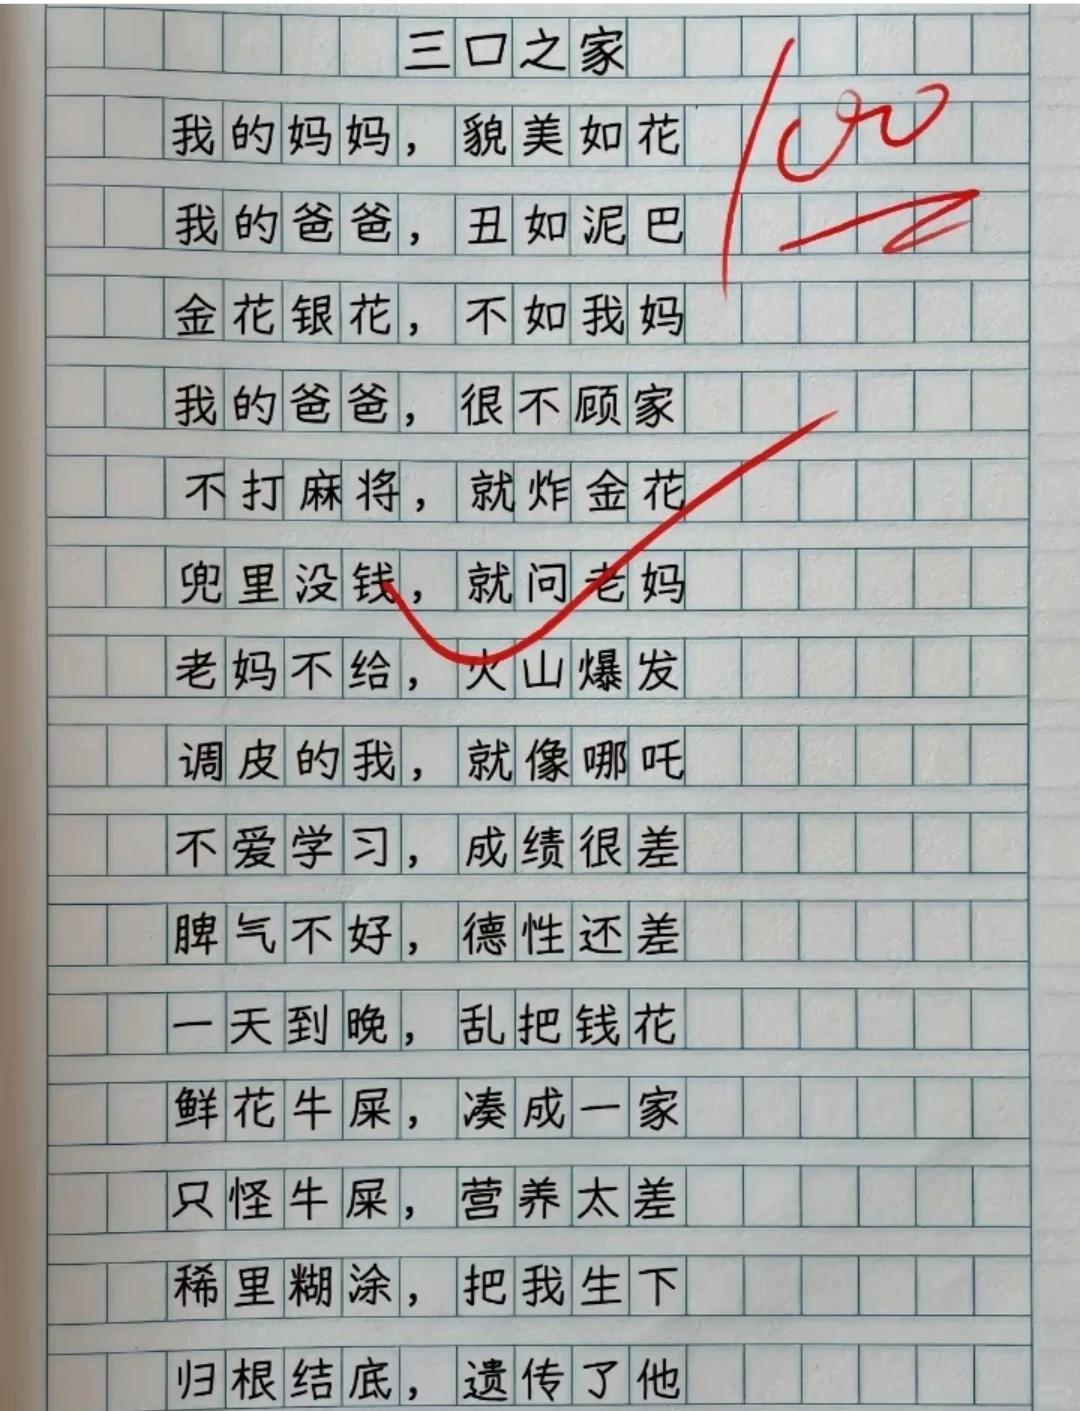 三口之家
100
我的妈妈，貌美如花
我的爸爸，丑如泥巴
金花银花，不如我妈
我的爸爸，很不顾家
不打麻将，就炸金花
兜里没钱，就问老妈
老妈不给，火山爆发
调皮的我，就像哪吒
不爱学习，成绩很差
脾气不好，德性还差
一天到晚，乱把钱花
鲜花牛屎，凑成一家
只怪牛屎，营养太差
稀里糊涂，把我生下
归根结底，遗传了他